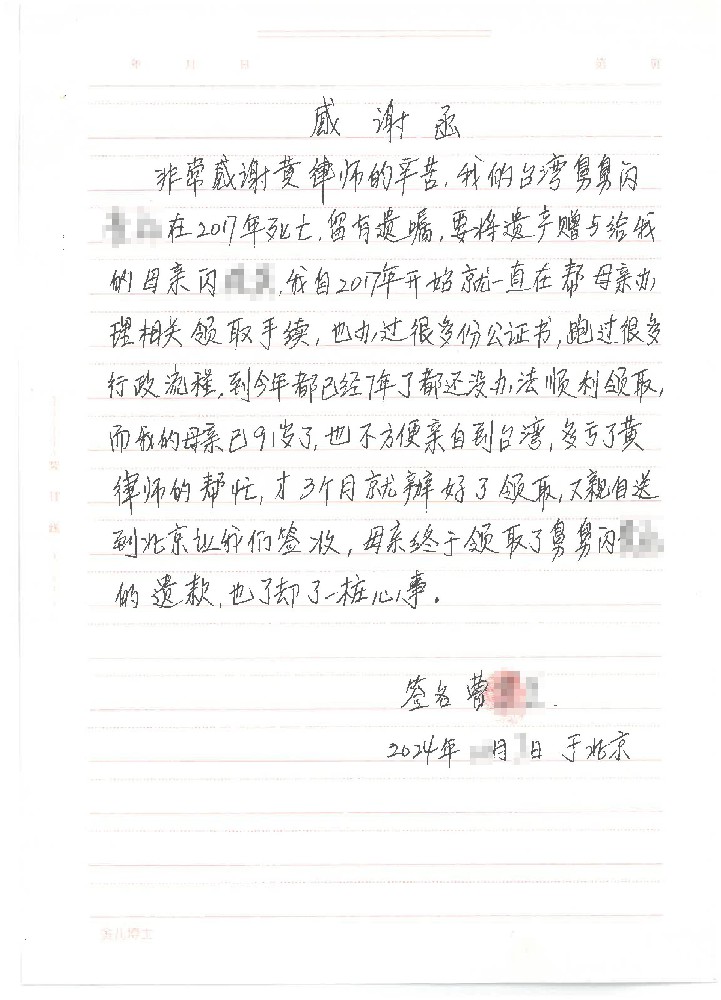 年 月 日 第 页
感谢函
非常感谢黄律师的辛苦，我的台湾舅舅闪
在2017年死亡，留有遗嘱，要将遗产赠与给我
的母亲闪，我自2017年开始就一直在帮母亲办
理相关领取手续，也办过很多份公证书，跑过很多
行政流程，到今年都已经7年了都还没办法顺利领取，
而我的母亲已91岁了，也不方便亲自到台湾，多亏了黄
律师的帮忙，才3个月就辦好了领取，又親自送
到北京让我们签收，母亲终于领取了舅舅闪
的遗款，也了却了一桩心事。
签名 曹
2024年 月 日 于北京